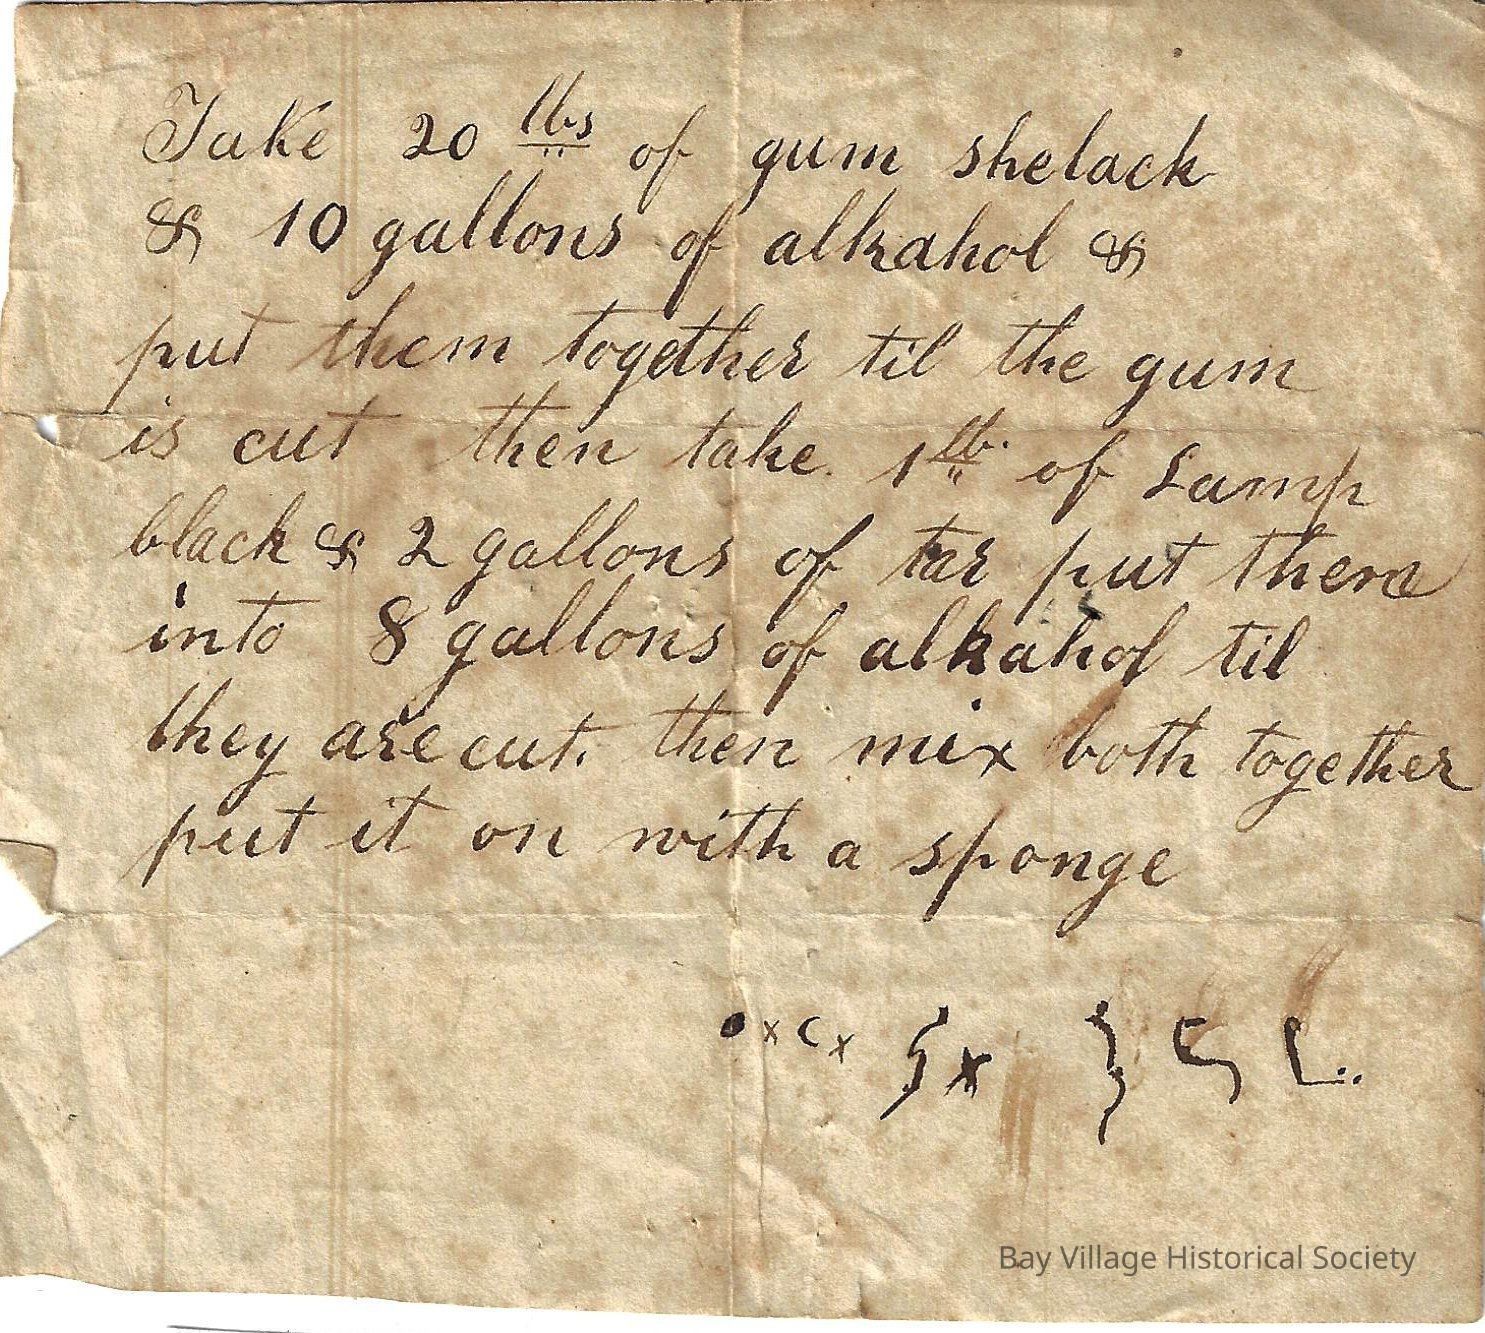 Take 20 lbs of gum shelack
& 10 gallons of alkahol &
put them together til the gum
is cut then take 1 lb. of Lamp
black & 2 gallons of tar put them
into 8 gallons of alkahol til
they are cut. then mix both together
put it on with a sponge
Bay Village Historical Society